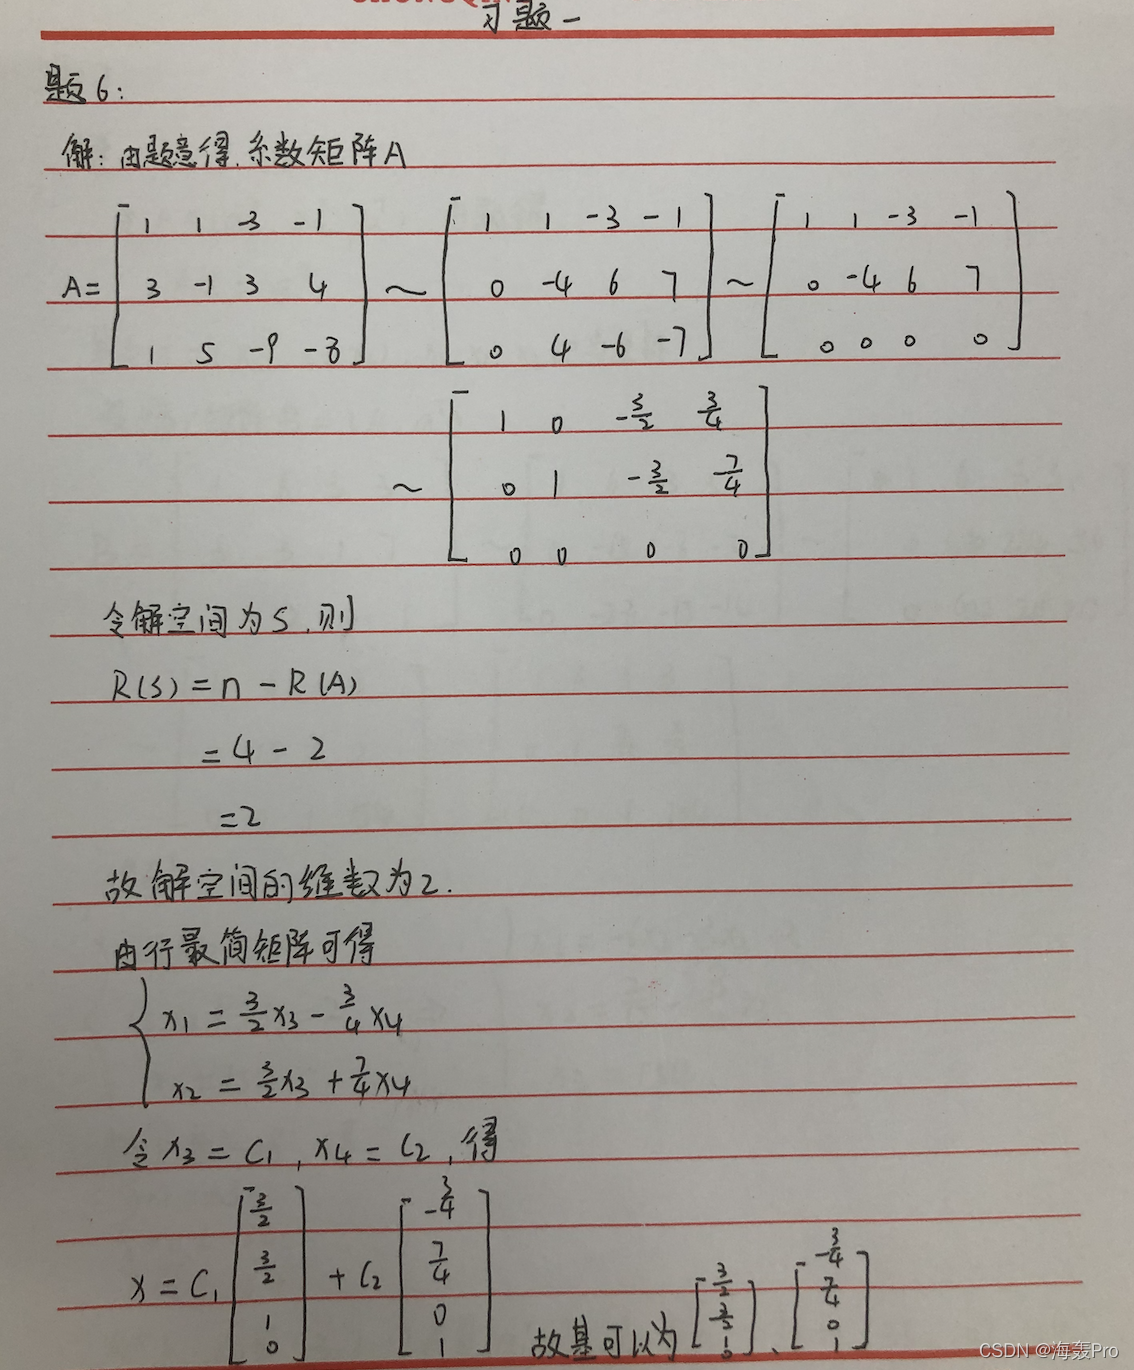 习题一
题6:
解: 由题意得, 系数矩阵A
A= [1 1 -3 -1; 3 -1 3 4; 1 5 -9 -8] ~ [1 1 -3 -1; 0 -4 6 7; 0 4 -6 -7] ~ [1 1 -3 -1; 0 -4 6 7; 0 0 0 0]
~ [1 0 -3/2 3/4; 0 1 -3/2 -7/4; 0 0 0 0]
令解空间为S, 则
R(S) = n - R(A)
= 4 - 2
= 2
故解空间的维数为2.
由行最简矩阵可得
{ x1 = 3/2 x3 - 3/4 x4
x2 = 3/2 x3 + 7/4 x4
令 x3 = C1, x4 = C2, 得
x = C1 [3/2; 3/2; 1; 0] + C2 [-3/4; 7/4; 0; 1] 故基可以为 [3/2; 3/2; 1; 0]、[-3/4; 7/4; 0; 1]
CSDN @海轰Pro